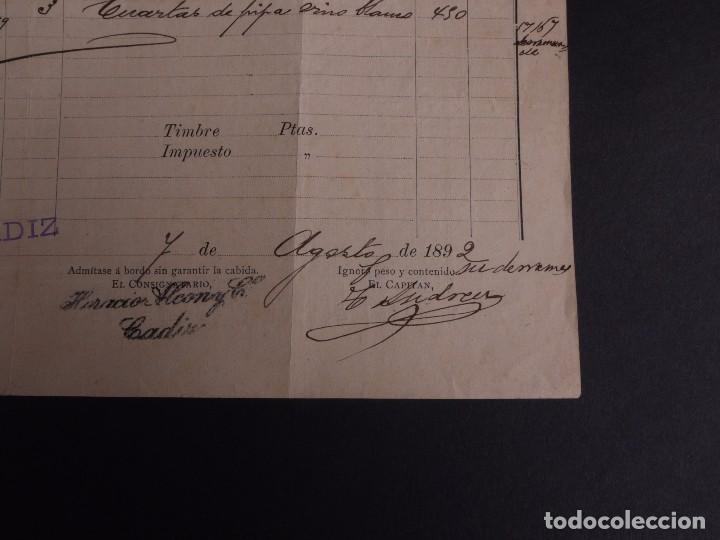 9 3 Cuartas de pipa vino blanco 450
57167
Timbre Ptas.
Impuesto "
DIZ
7 de Agosto de 1892
Admítase á bordo sin garantir la cabida.
Ignoro peso y contenido
EL CONSIGNATARIO,
EL CAPITAN,
Horacio Alcon y Cª
Cadiz
todocoleccion
todocoleccion.net